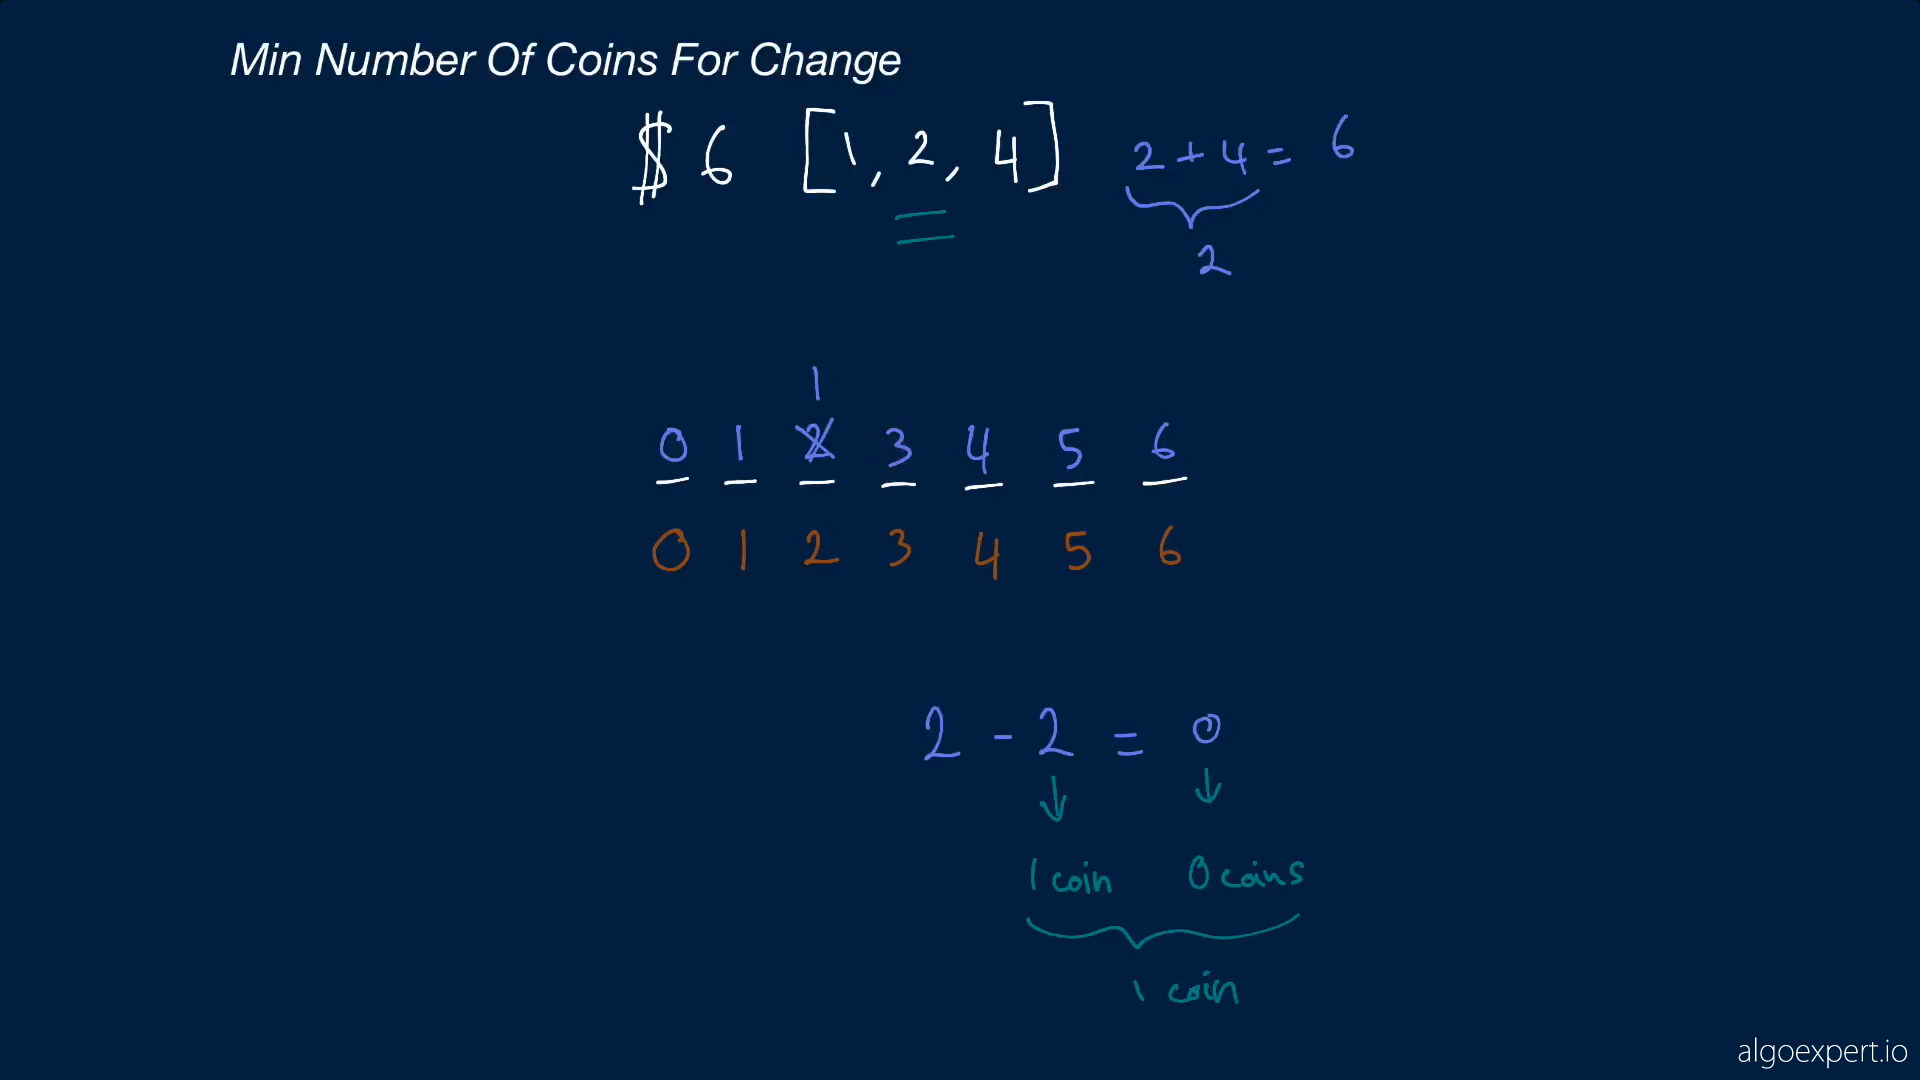 Min Number Of Coins For Change
$ 6 [1, 2, 4] 2 + 4 = 6
2
1
0 1 2 3 4 5 6
0 1 2 3 4 5 6
2 - 2 = 0
1 coin 0 coins
1 coin
algoexpert.io